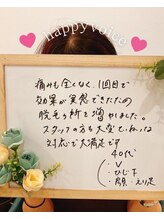 happy voice
痛みも全くなく、1回目で
効果が実感できたため
脱毛ヶ所を増かしました。
スタッフの方も大変ていねいな
対応で大満足です
40代
・V
・ひじ下
・顔・えり足